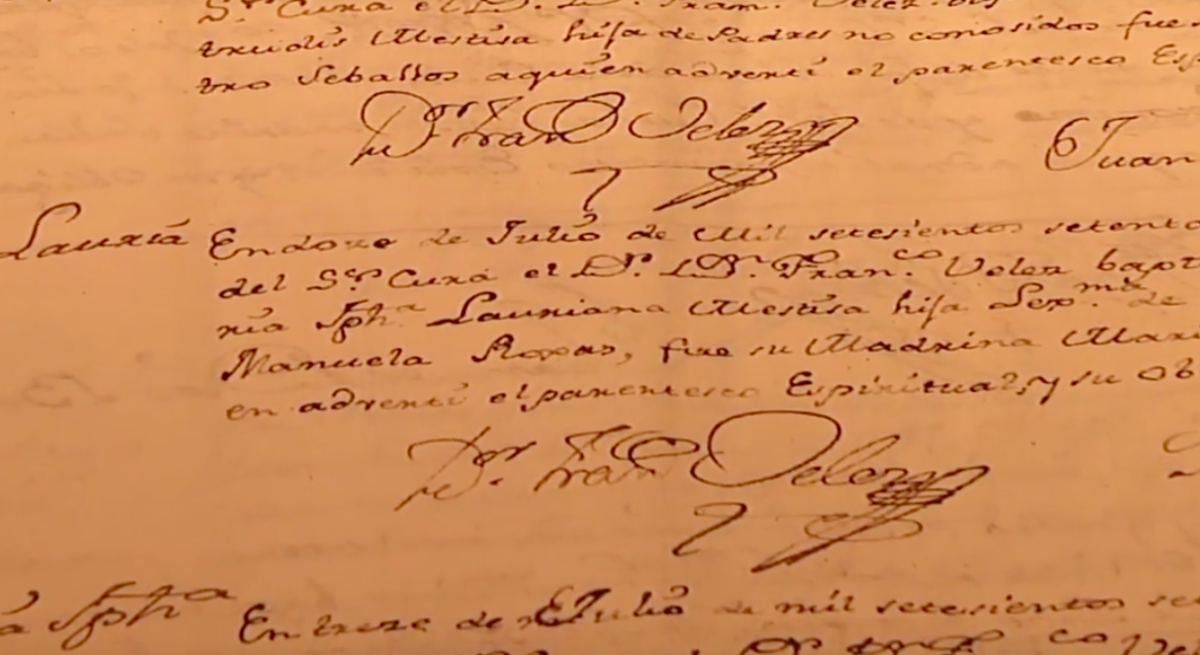 Sr. Cura el D. D. Fran. Velez
trudis Mestisa hija de Padres no conosidos fue
tro Seballos aquien adverti el parentesco Esp
Dor. Fran Velez
Juan
Lauria Endoze de Julio de Mil setesientos setenta
del Sor. Cura el Dr. D. Fran.co Velez bapt
ria Jpha Lauriana Mestisa hija Lex.ma de
Manuela Roxas, fue su Madrina Mari
en adverti el parentesco Espiritual, y su ob
Dor. Fran Velez
a Jpha Entreze de Julio de mil setesientos se
co Ve